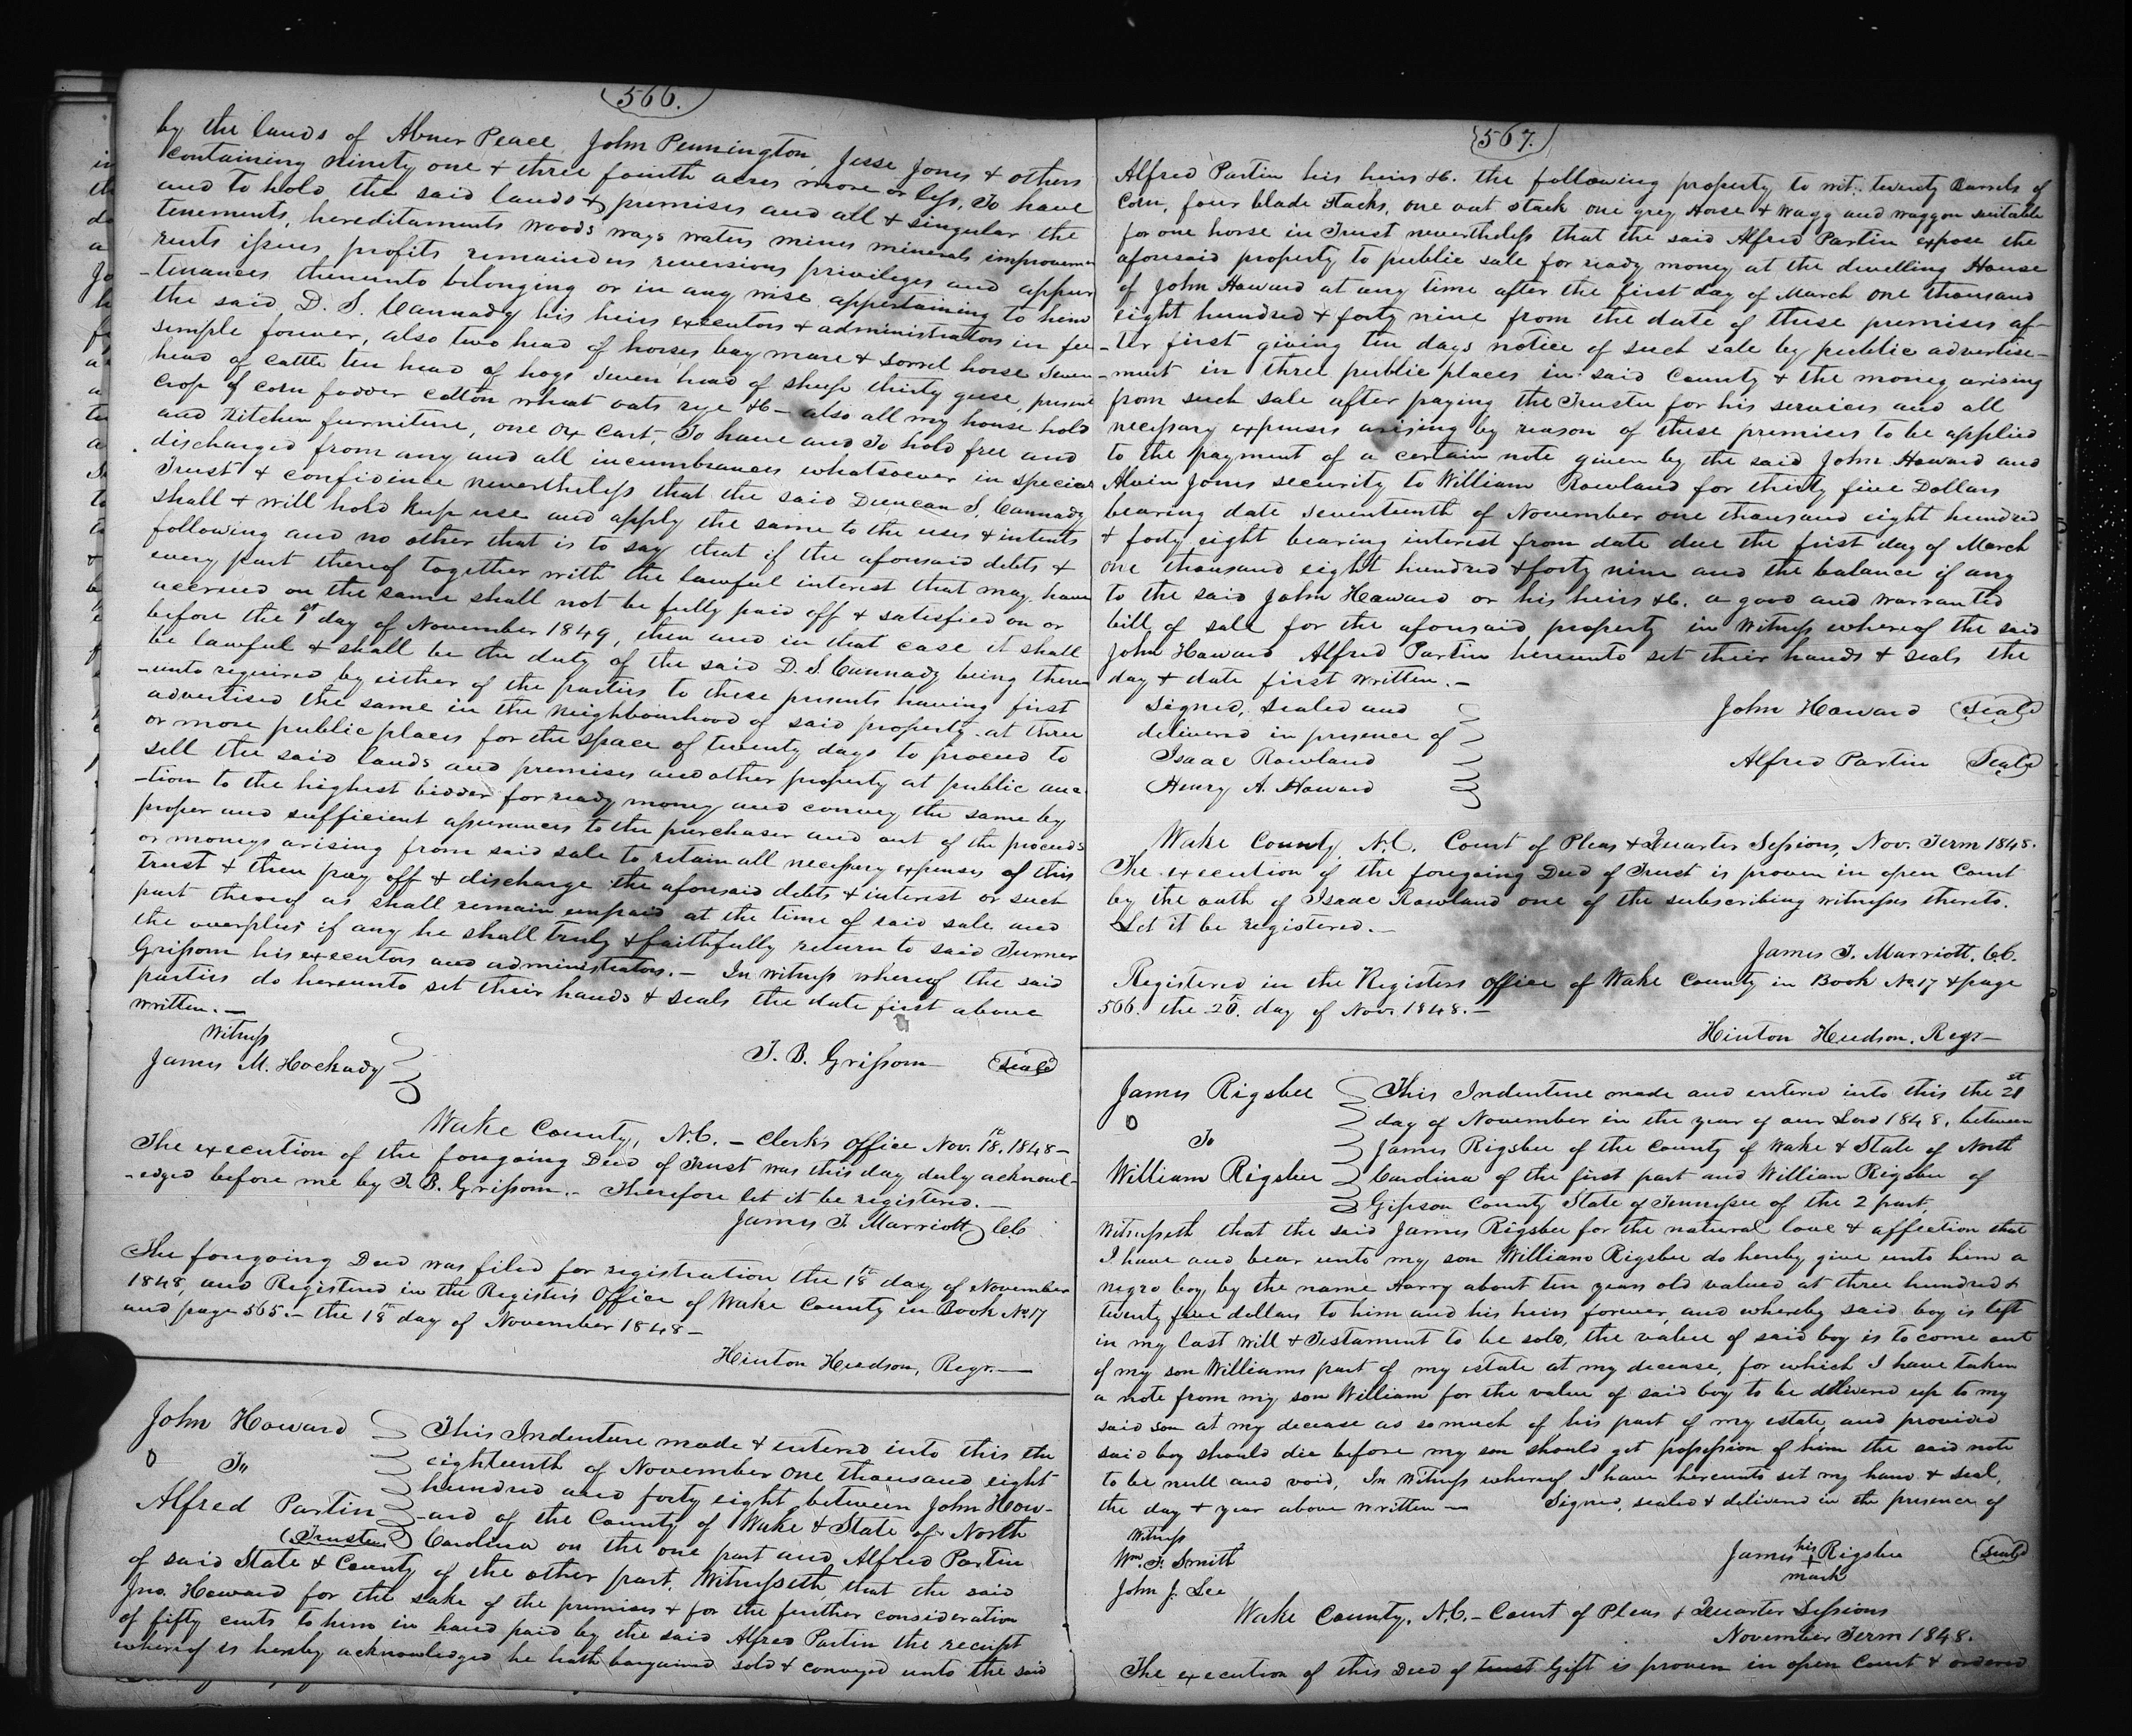 566.
by the lands of Abner Peace, John Pennington, Jesse Jones & others
containing ninety one & three fourth acres more or less, To have
and to hold the said lands & premises and all & singular the
tenements, hereditaments woods ways waters mines minerals improvemen
rents issues profits remainders reversions privileges and appur
-tenances thereunto belonging or in any wise appertaining to him
the said D. S. Cannady his heirs executors & administrators in fee
simple forever, also two head of horses bay mare & sorrel horse Seven
head of cattle ten head of hogs seven head of sheep thirty geese, present
crop of corn fodder cotton wheat oats rye &c - also all my house hold
and kitchen furniture, one Ox Cart, To have and To hold free and
discharged from any and all incumbrances whatsoever in special
Trust & confidence nevertheless that the said Duncan S. Cannady
shall & will hold keep use and apply the same to the uses & intents
following and no other that is to say that if the aforesaid debts &
every part thereof together with the lawful interest that may have
accrued on the same shall not be fully paid off & satisfied on or
before the 1st day of November 1849, then and in that case it shall
be lawful & shall be the duty of the said D. S. Cannady being there
-unto required by either of the parties to these presents having first
advertised the same in the neighbourhood of said property at three
or more public places for the space of twenty days to proceed to
sell the said lands and premises and other property at public auc
-tion to the highest bidder for ready money and convey the same by
proper and sufficient assurances to the purchaser and out of the proceeds
or moneys arising from said sale to retain all necessary expenses of this
trust & then pay off & discharge the aforesaid debts & interest or such
part thereof as shall remain unpaid at the time of said sale and
the overplus if any he shall truly & faithfully return to said Turner
Grissom his executors and administrators. - In witness whereof the said
parties do hereunto set their hands & seals the date first above
written. -
Witness
James M. Hockady
T. B. Grissom Seal
Wake County, N.C. - Clerk's Office Nov. 18th, 1848 -
The execution of the foregoing Deed of Trust was this day duly acknowl-
-edged before me by T. B. Grissom. - Therefore let it be registered. -
James T. Marriott CC
The foregoing Deed was filed for registration the 18th day of November
1848, and Registered in the Register's Office of Wake County in Book No. 17
and page 565. - the 18th day of November 1848 -
Hinton Hudson, Regr. -
John Howard
To
Alfred Partin
(Trustee)
This Indenture made & entered into this the
eighteenth of November One thousand eight
hundred and forty eight between John How-
-ard of the County of Wake & State of North
Carolina on the one part and Alfred Partin
of said State & County of the other part, Witnesseth, that the said
Jno. Howard for the sake of the premises & for the further consideration
of fifty cents to him in hand paid by the said Alfred Partin the receipt
whereof is hereby acknowledged he hath bargained sold & conveyed unto the said
567.
Alfred Partin his heirs &c. the following property to wit. twenty Barrels of
Corn, four blade Stacks, one oat stack one grey Horse & wagg and waggon suitable
for one horse in Trust nevertheless that the said Alfred Partin expose the
aforesaid property to public sale for ready money at the dwelling House
of John Howard at any time after the first day of March one thousand
eight hundred & forty nine from the date of these premises af-
-ter first giving ten days notice of such sale by public advertise-
-ment in three public places in said County & the money arising
from such sale after paying the Trustee for his services and all
necessary expenses arising by reason of these premises to be applied
to the payment of a certain note given by the said John Howard and
Alvin Jones security to William Rowland for thirty five Dollars
bearing date seventeenth of November one thousand eight hundred
& forty eight bearing interest from date due the first day of March
one thousand eight hundred & forty nine and the balance if any
to the said John Howard or his heirs &c. a good and warranted
bill of sale for the aforesaid property in Witness whereof the said
John Howard Alfred Partin hereunto set their hands & seals the
day & date first written. -
Signed, sealed and
delivered in presence of
Isaac Rowland
Henry A. Howard
John Howard Seal
Alfred Partin Seal
Wake County, N.C. Court of Pleas & Quarter Sessions, Nov. Term 1848.
The execution of the foregoing Deed of Trust is proven in open Court
by the oath of Isaac Rowland one of the subscribing witnesses thereto.
Let it be registered. -
James T. Marriott, C.C.
Registered in the Registers office of Wake County in Book No. 17 & page
566. the 26th. day of Nov. 1848. -
Hinton Hudson, Regr -
James Rigsbee
To
William Rigsbee
This Indenture made and entered into this the 21st
day of November in the year of our Lord 1848, between
James Rigsbee of the County of Wake & State of North
Carolina of the first part and William Rigsbee of
Gipson County State of Tennessee of the 2 part,
Witnesseth that the said James Rigsbee for the natural love & affection that
I have and bear unto my son William Rigsbee do hereby give unto him a
negro boy by the name Harry about ten years old valued at three hundred &
twenty five dollars to him and his heirs forever, and whereby said boy is left
in my last Will & Testament to be sold, the value of said boy is to come out
of my son Williams part of my estate at my decease, for which I have taken
a note from my son William for the value of said boy to be delivered up to my
said son at my decease as so much of his part of my estate, and provided
said boy should die before my son should get possession of him the said note
to be null and void, In Witness whereof I have hereunto set my hand & seal,
the day & year above written - Signed, sealed & delivered in the presence of
Witness
Wm. F. Smith
John J. Lee
James his + mark Rigsbee Seal
Wake County, N.C. - Court of Pleas & Quarter Sessions
November Term 1848.
The execution of this Deed of trust Gift is proven in open Court & ordered